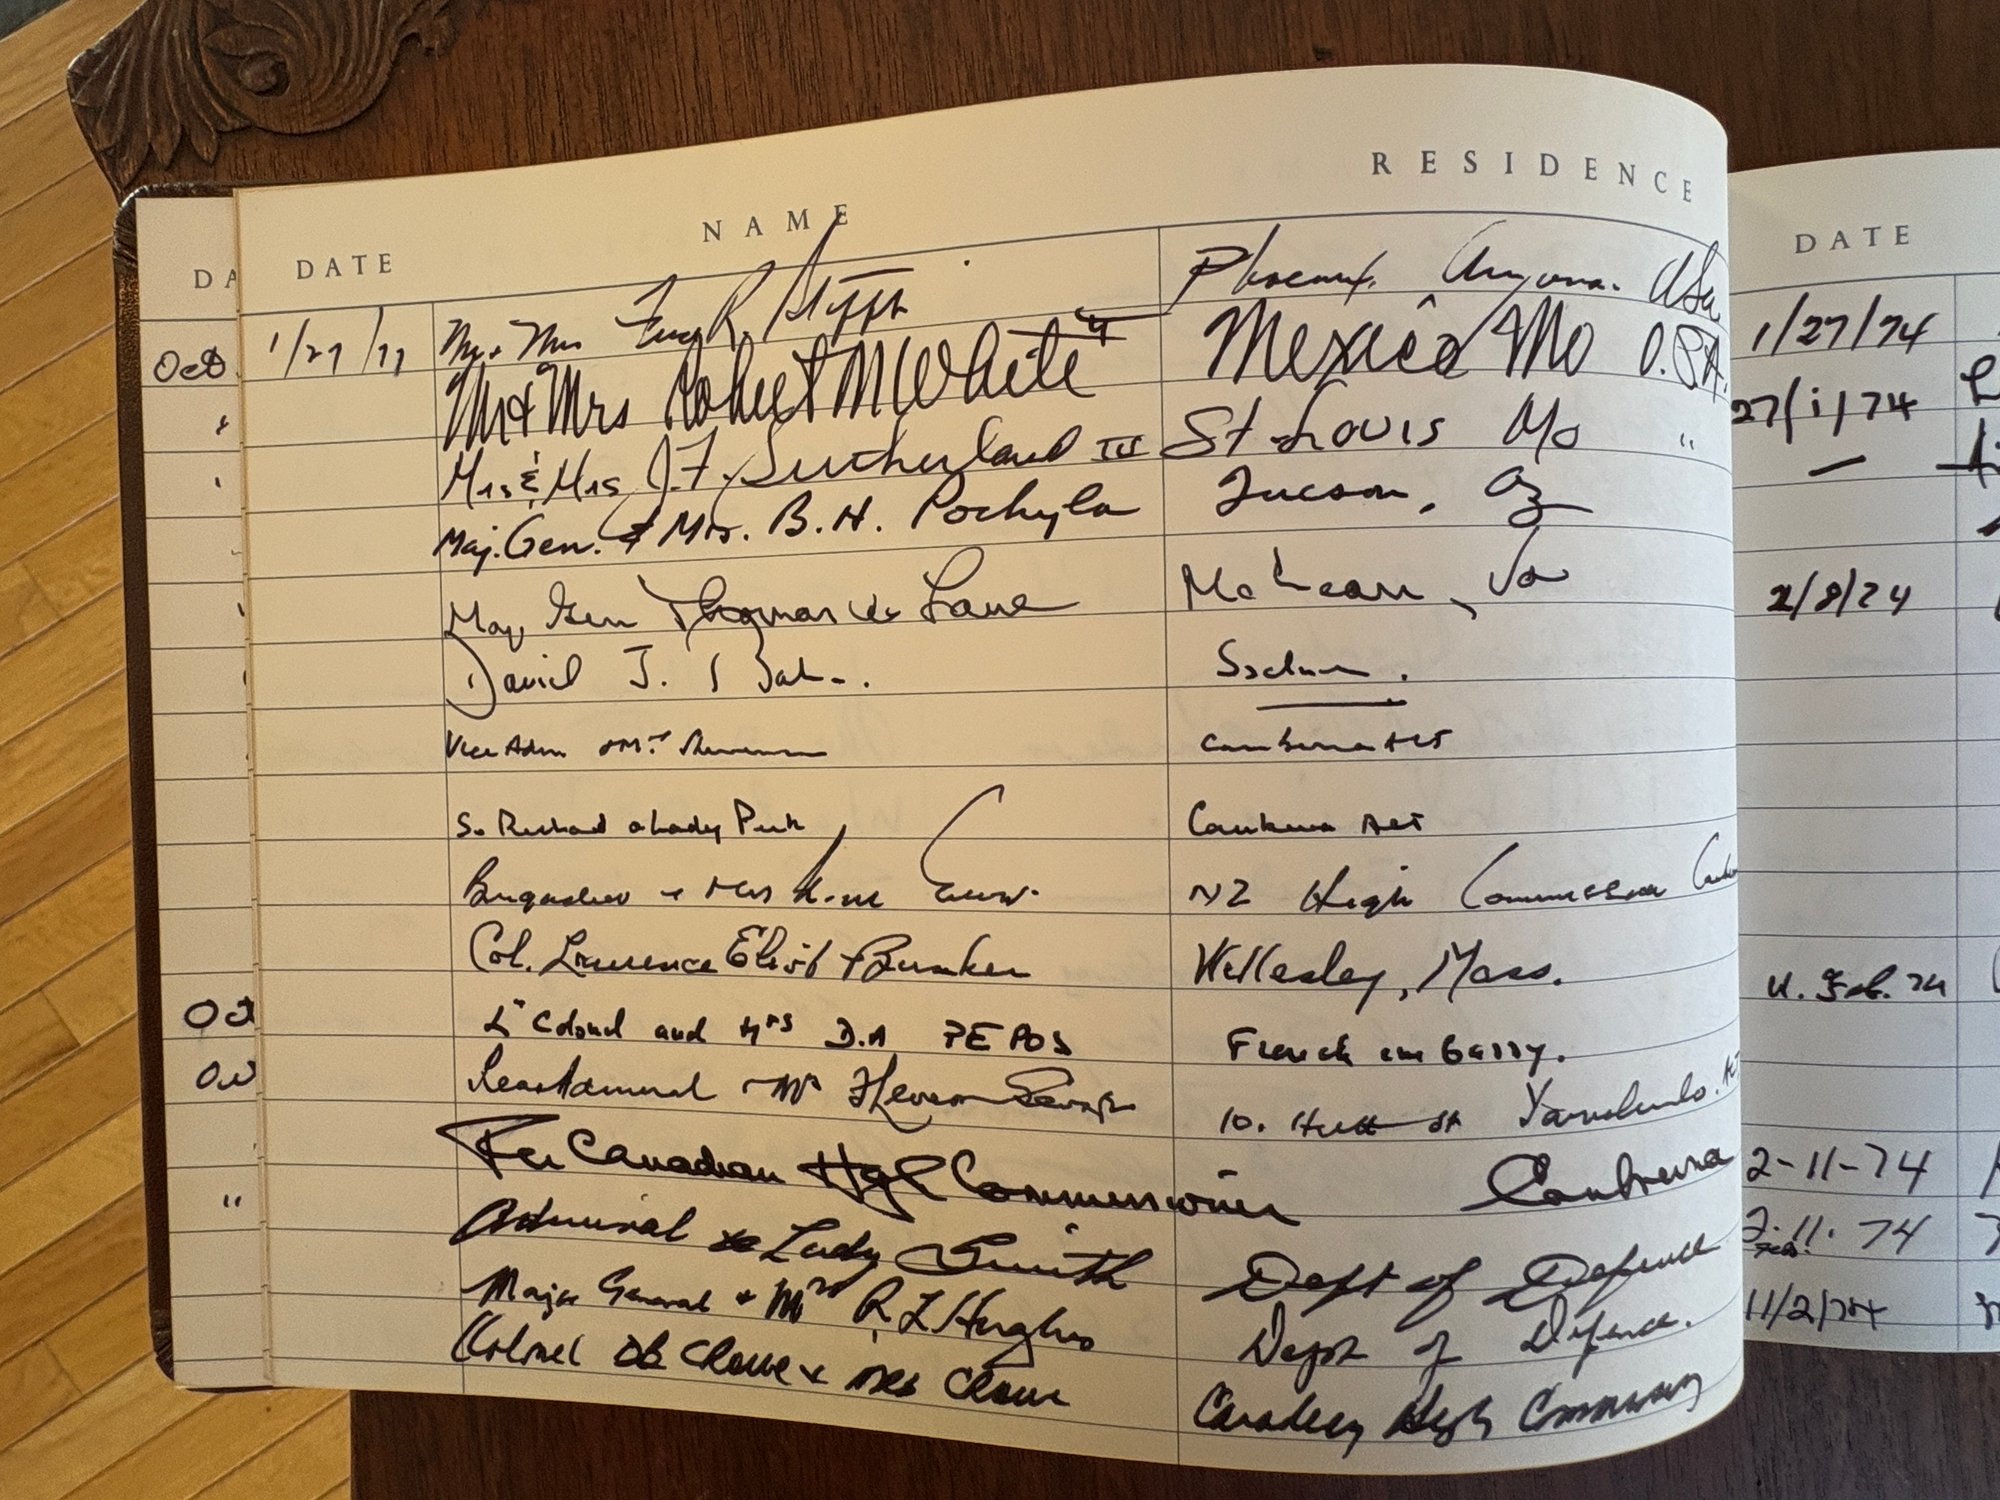 DATE NAME RESIDENCE
1/27/77 Mr + Mrs R. Phoenix, Arizona. USA
Mr & Mrs Robert M White Mexico Mo U.S.A.
Mrs & Mrs J. F. Sutherland III St Louis Mo "
Maj. Gen. & Mrs. B. H. Pochyla Tucson, Az
Maj Gen Thomas Lane McLean, Va
David J. Sydney.
Vice Adm + Mrs Canberra ACT
Sir Richard & Lady Peek Canberra ACT
Brigadier + Mrs NZ High Commission
Col. Laurence Eliot Bunker Wellesley, Mass.
Lt Colonel and Mrs D.A PEPOS French embassy.
Rear Admiral Mrs 10. Hutt St Yarralumla. ACT
The Canadian High Commissioner Canberra
Admiral & Lady Smith Dept of Defence
Major General + Mrs R L Hughes Dept of Defence.
Colonel Crowe + Mrs Crowe High
DA
Oct
"
Oct
Oct
"
DATE
1/27/74
27/1/74
—
2/8/74
11. Feb. 74
2-11-74
2.11.74
Feb.
11/2/74